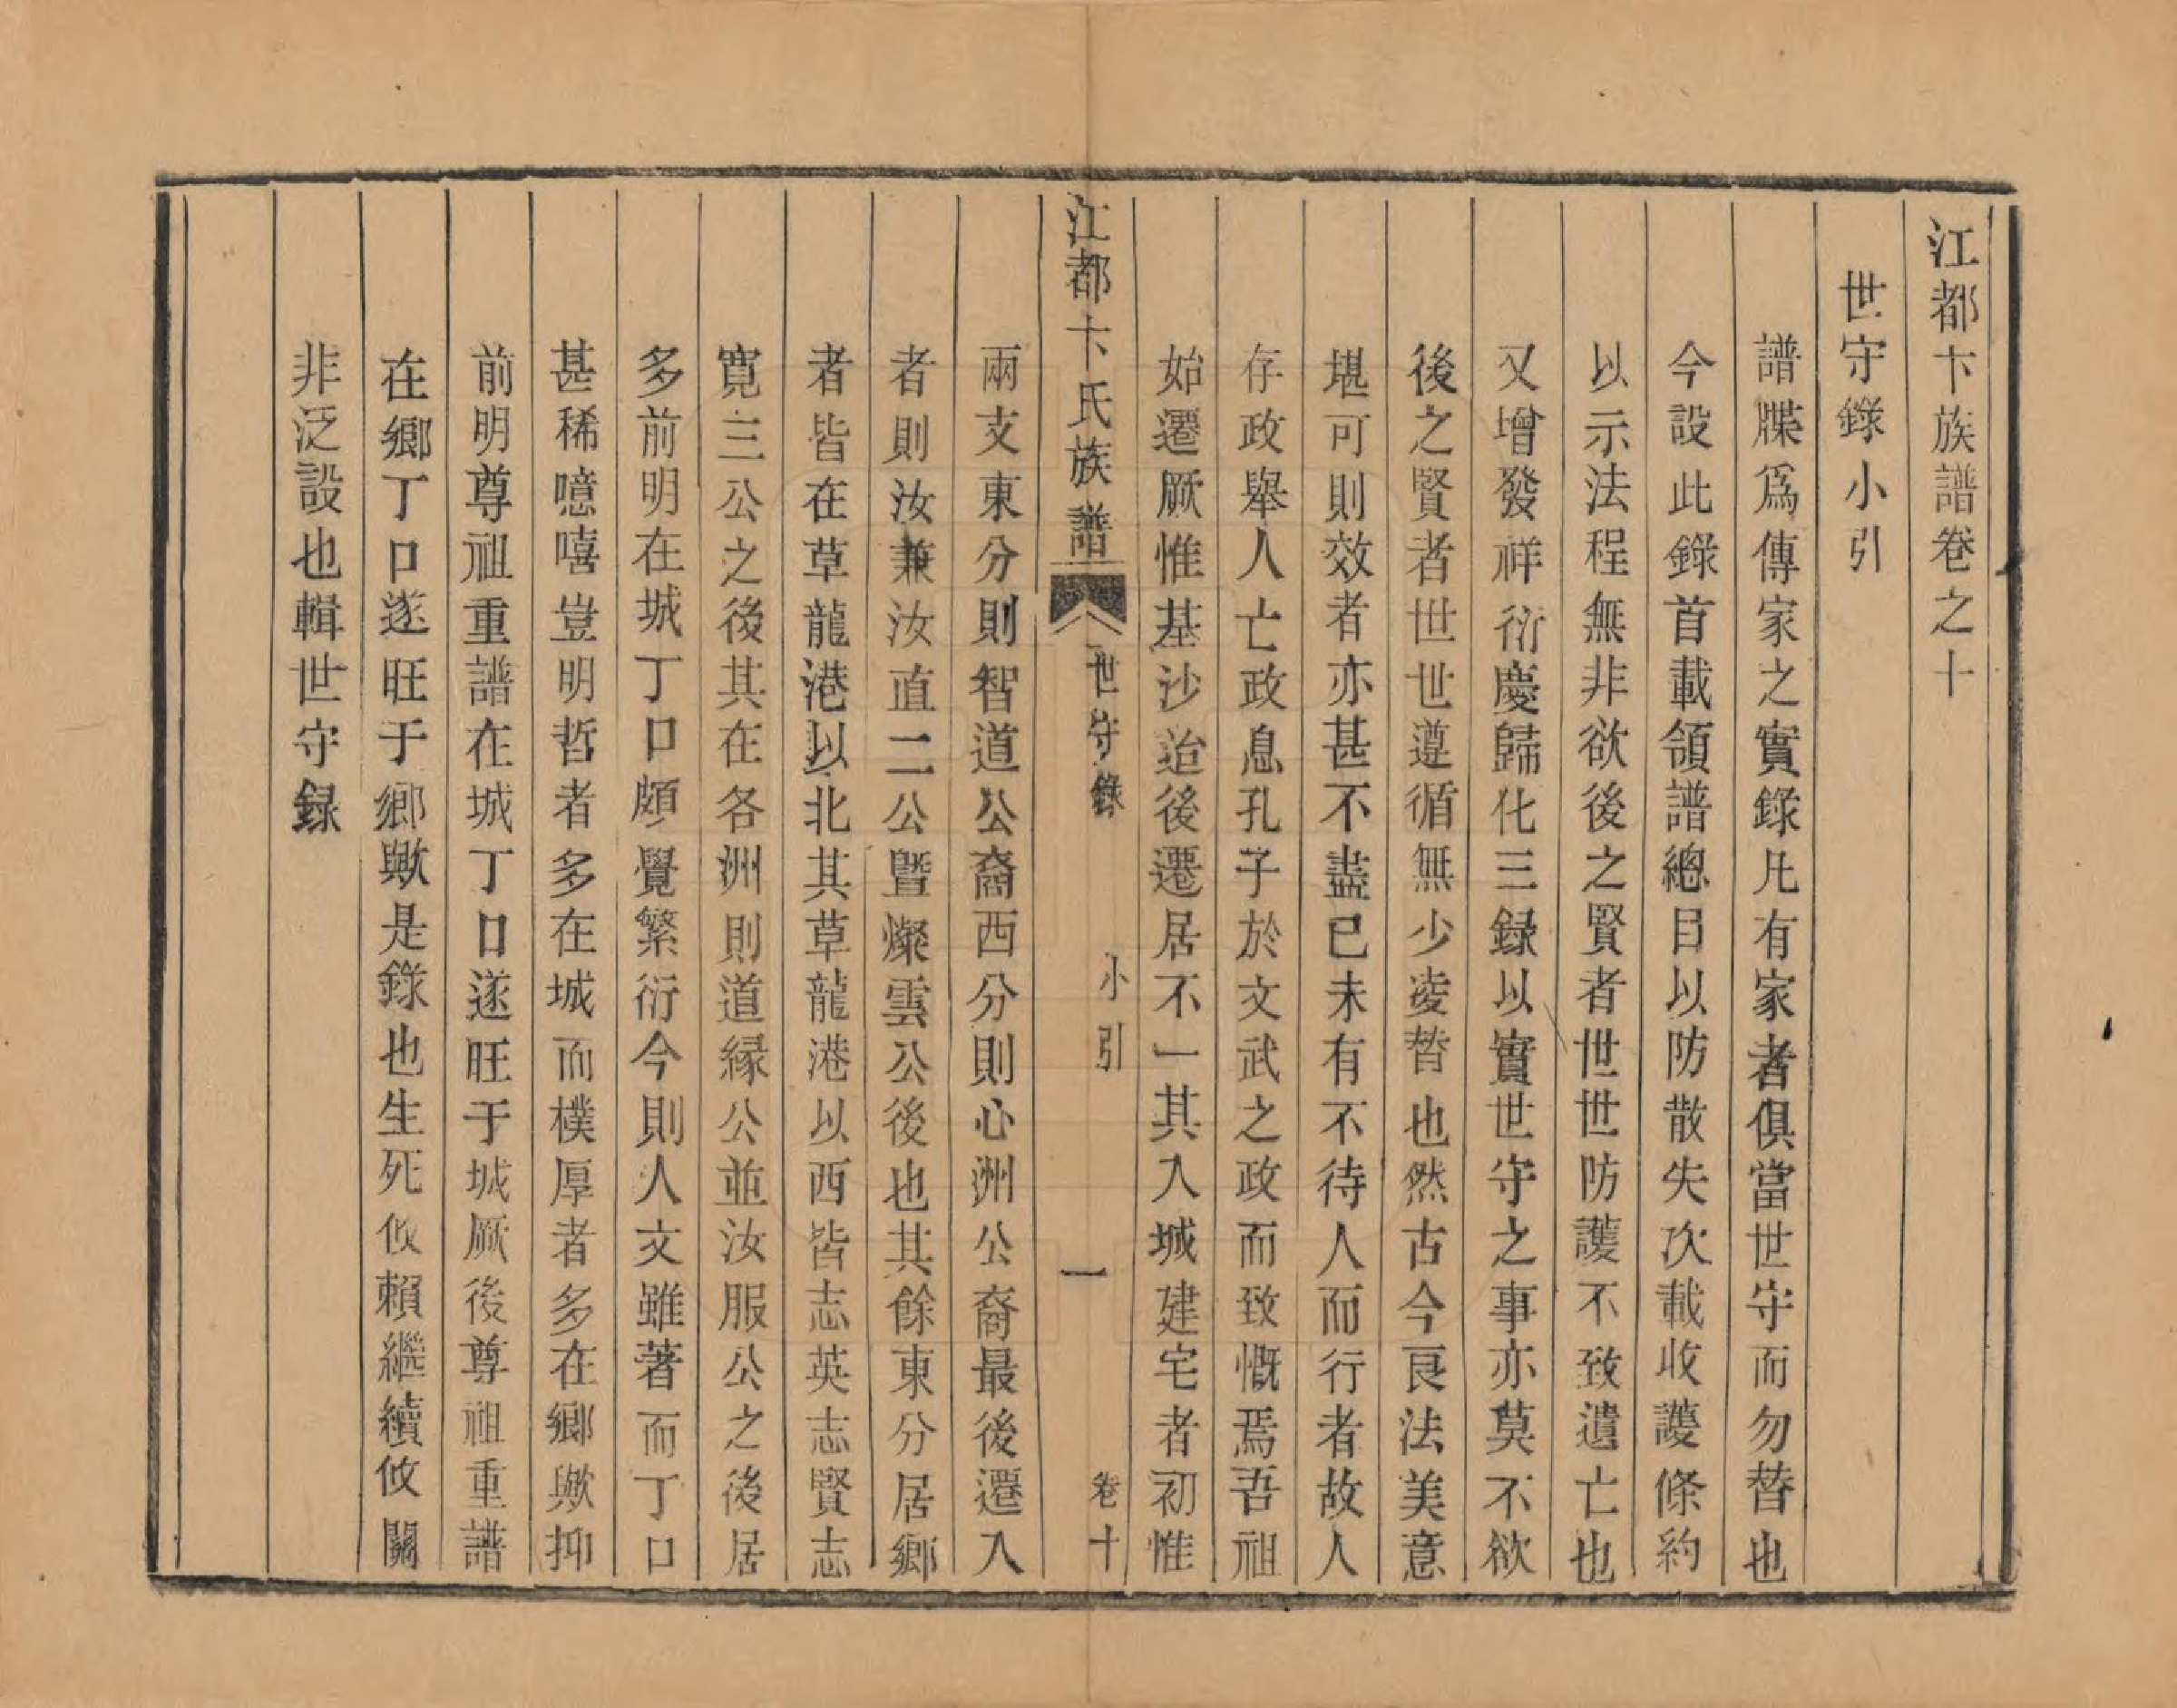 江都卞族譜卷之十
世守錄小引
譜牒爲傳家之實錄凡有家者俱當世守而勿替也
今設此錄首載領譜總目以防散失次載收護條約
以示法程無非欲後之賢者世世防護不致遺亡也
又增發祥衍慶歸化三録以實世守之事亦莫不欲
後之賢者世世遵循無少凌替也然古今良法美意
堪可則效者亦甚不尠已未有不待人而行者故人
存政舉人亡政息孔子於文武之政而致慨焉吾祖
始遷厥惟基沙迨後遷居不一其入城建宅者初惟
江都卞氏族譜 世守錄 小引 一 卷十
兩支東分則智道公裔西分則心洲公裔最後遷入
者則汝兼汝直二公暨燦雲公後也其餘東分居鄉
者皆在草龍港以北其草龍港以西皆志英志賢志
寬三公之後其在各洲則道緣公並汝服公之後居
多前明在城丁口頗覺繁衍今則人文雖著而丁口
甚稀噫嘻豈明哲者多在城而樸厚者多在鄉歟抑
前明尊祖重譜在城丁口遂旺于城厥後尊祖重譜
在鄉丁口遂旺于鄉歟是錄也生死攸賴繼續攸關
非泛設也輯世守録